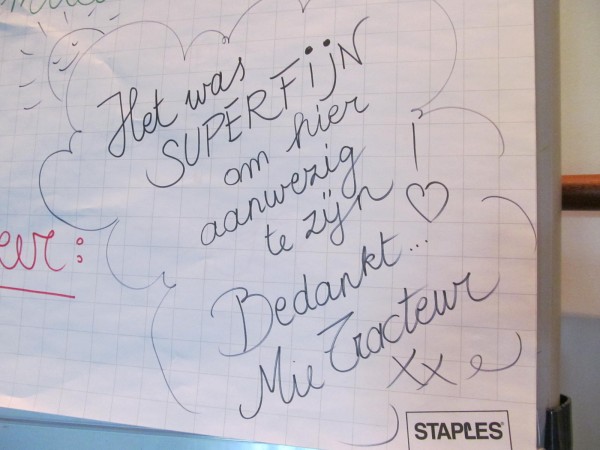 Het was
SUPERFIJN
om hier
aanwezig
te zijn !
Bedankt... ♡
Mie Tracteur
xx
eur:
STAPLES